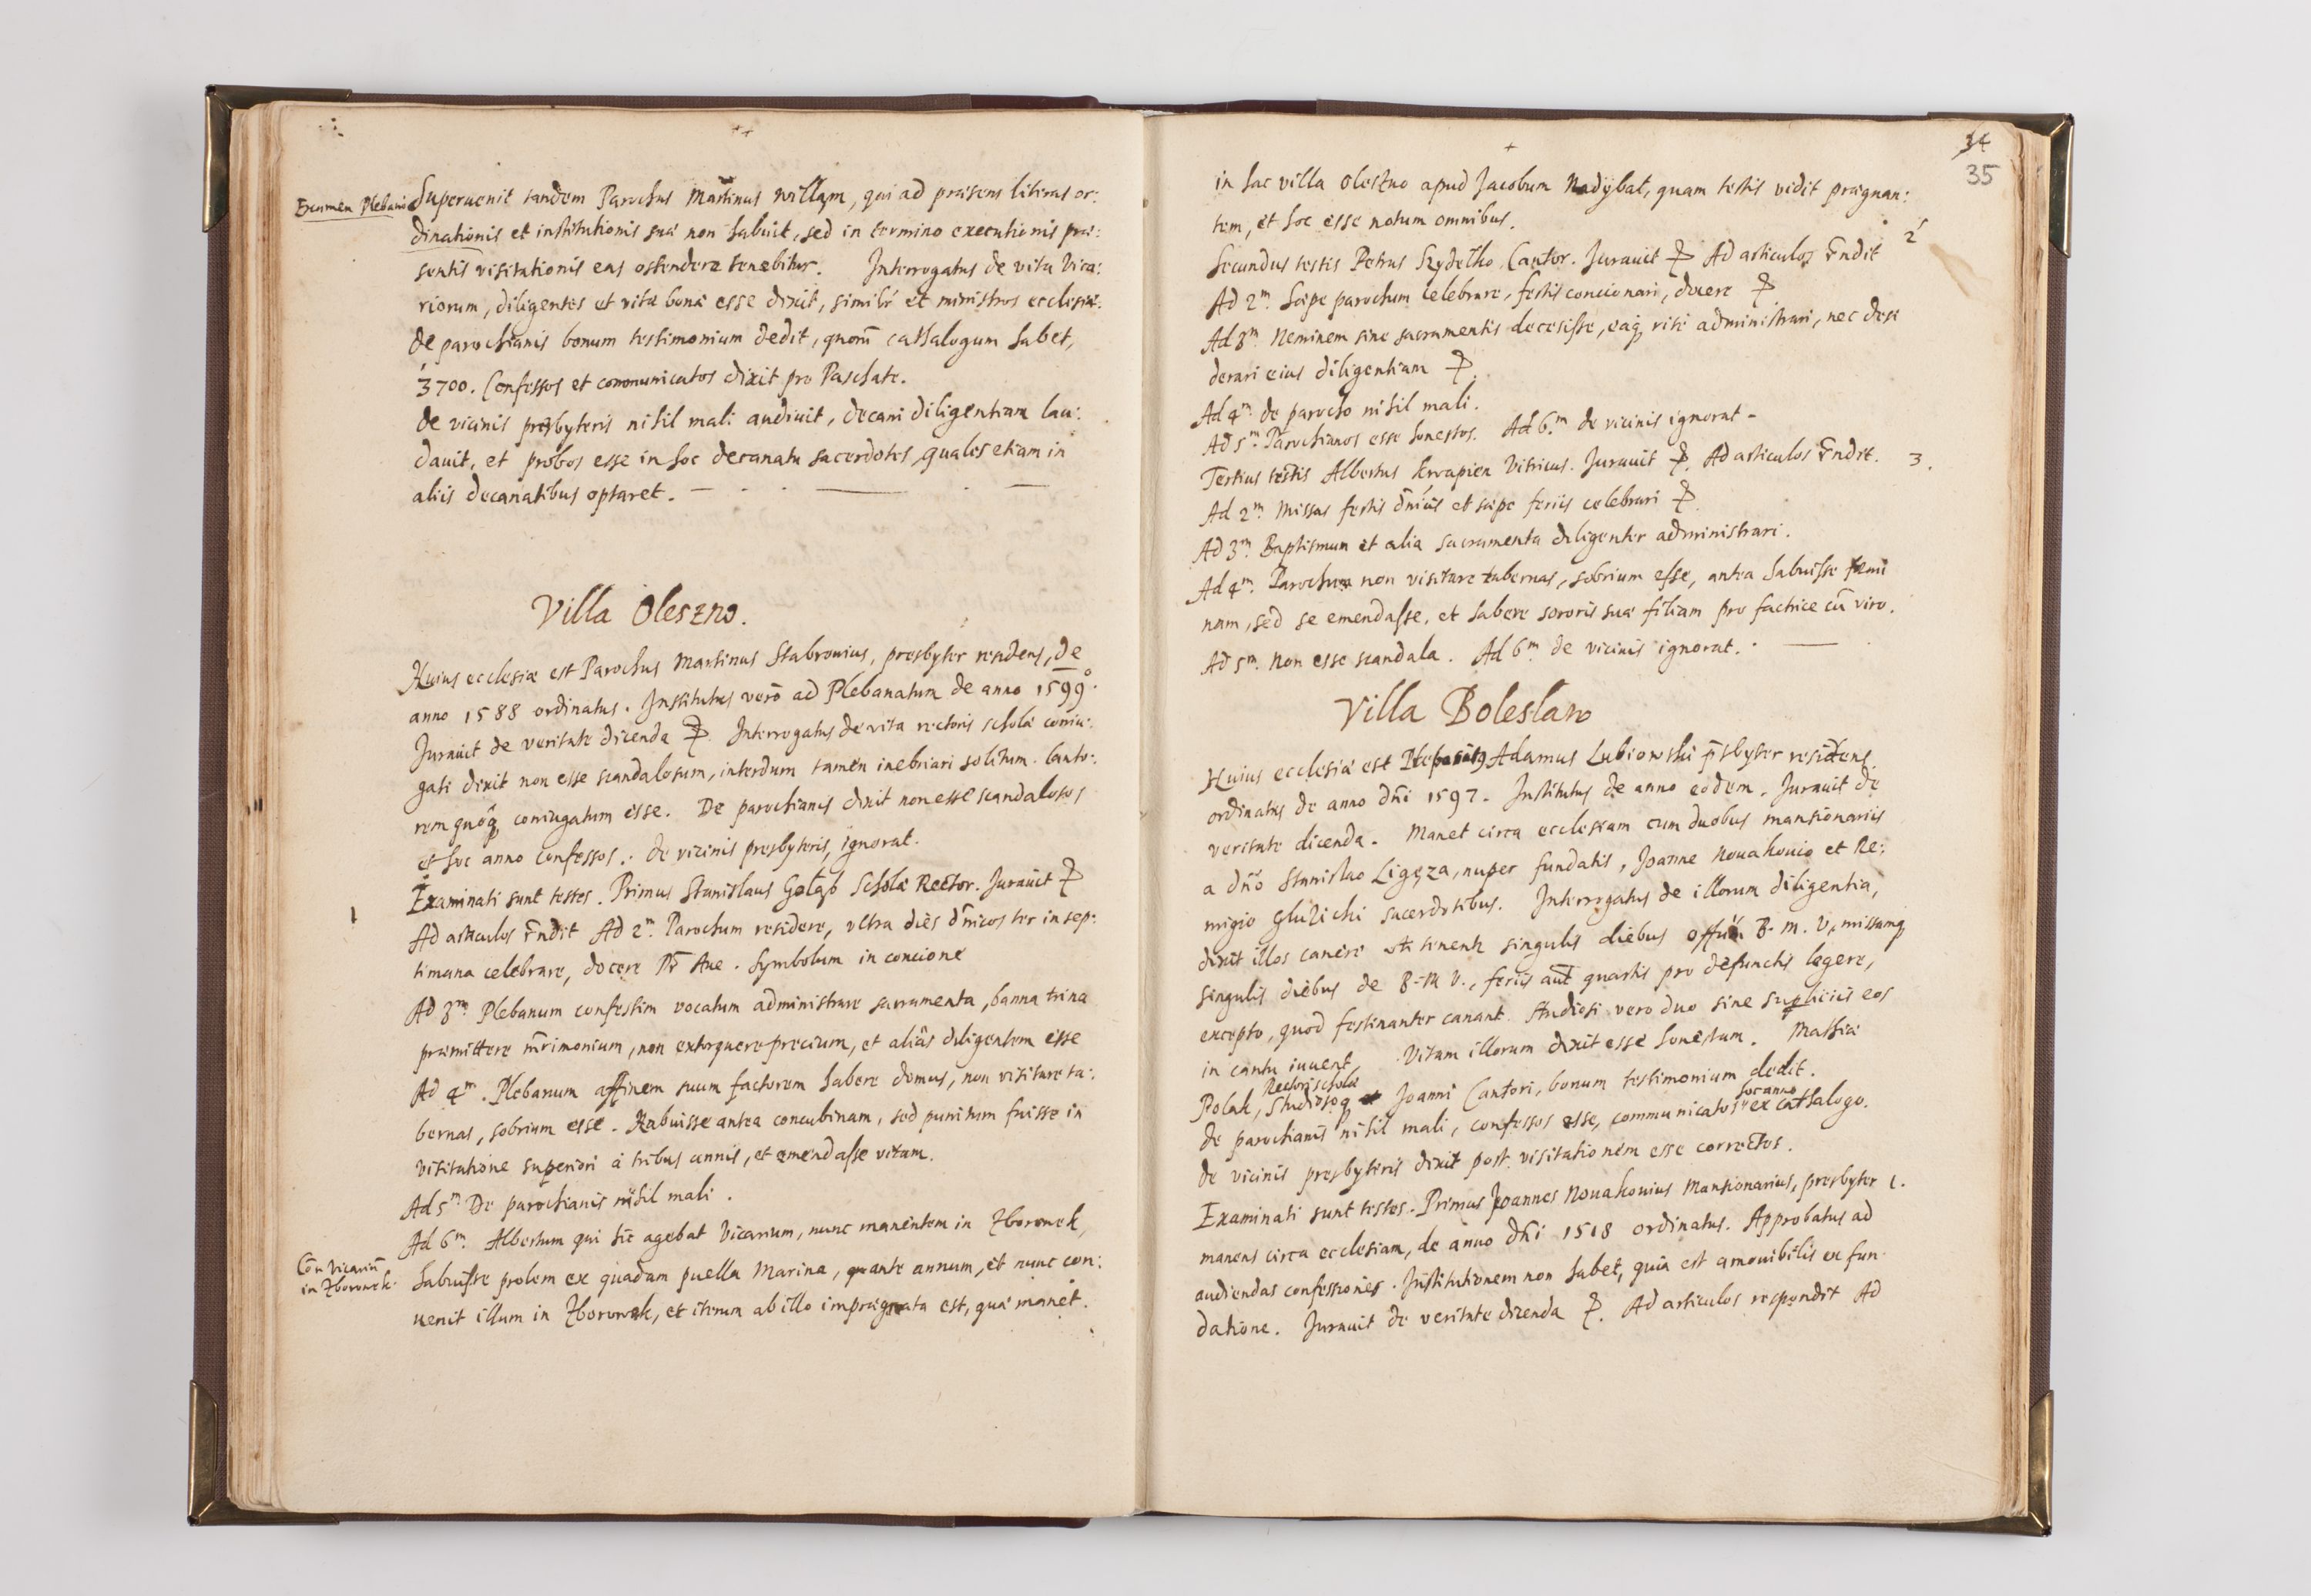 Examen Plebani
Superuenit tandem Parochus Martinus Willam, qui ad præsens literas or:
dinationis et institutionis suæ non habuit, sed in termino executionis præ:
sentis visitationis eas ostendere tenebitur. Interrogatus de vita Vica:
riorum, diligentes et vitæ bonæ esse dixit, similr et ministros ecclesiæ.
de parochianis bonum testimonium dedit, quorū cathalogum habet,
3700. Confessos et communicatos dixit pro Paschate.
de vicinis presbyteris nihil mali audiuit, decani diligentiam lau:
dauit, et probos esse in hoc decanatu sacerdotes, quales etiam in
aliis decanatibus optaret.
Villa Oleszno.
Huius ecclesiæ est Parochus Martinus Stabrouius, presbyter residens, de
anno 1588 ordinatus. Institutus verò ad Plebanatum de anno 1599°.
Jurauit de veritate dicenda Interrogatus de vita rectoris scholæ coniu:
gati dixit non esse scandalosum, interdum tamen inebriari solitum. Canto:
rem quoq₃ coniugatum esse. De parochianis dixit non esse scandalosos
et hoc anno confessos. de vicinis presbyteris, ignorat.
1
Examinati sunt testes. Primus Stanislaus Gołąb Scholæ Rector. Jurauit
Ad articulos r̄ndit Ad 2m. Parochum residere, ultra dies dn̄icos ter in sep:
timana celebrare, docere Pr̄ Aue. Symbolum in concione
Ad 3m. Plebanum confestim vocatum administrare sacramenta, banna trina
præmittere mr̄imonium, non extorquere precium, et aliâs diligentem esse
Ad 4m. Plebanum affinem suum factorem habere domus, non visitare ta:
bernas, sobrium esse. Habuisse antea concubinam, sed punitum fuisse in
visitatione superiori à tribus annis, et emendasse vitam.
Ad 5m. De parochianis nihil mali.
Ad 6m. Albertum qui hic agebat Vicarium, nunc manentem in Zborowek,
Cōn Vicariū
in Zborowek.
habuisse prolem ex quadam puella Marina, ante annum, et nunc con:
uenit illum in Zborowek, et iterum ab illo imprægnata est, quæ manet.
34
35
in hac villa Oleszno apud Jacobum Nadÿbał, quam testis vidit prægnan:
tem, et hoc esse notum omnibus.
2
Secundus testis Petrus Szydełko Cantor. Jurauit Ad articulos r̄ndit
Ad 2m. Sæpe parochum celebrare, festis concionari, docere
Ad 3m. Neminem sine sacramentis decesisse, eaq₃ rite administrari, nec desi
derari eius diligentiam
Ad 4m. de parocho nihil mali.
Ad 5m. Parochianos esse honestos. Ad 6m. de vicinis ignorat.
Tertius testis Albertus Vitricus. Jurauit Ad articulos r̄ndit. 3.
Ad 2m. Missas festis dn̄icis et sæpe feriis celebrari
Ad 3m. Baptismum et alia sacramenta diligenter administrari.
Ad 4m. Parochum non visitare tabernas, sobrium esse, antea habuisse fæmi
nam, sed se emendasse, et habere sororis suæ filiam pro factrice cū viro.
Ad 5m. Non esse scandala. Ad 6m. de vicinis ignorat.
Villa Bolesław
Huius ecclesiæ est Adamus Lubiowski p̄sbyter residens
ordinatus de anno dn̄i 1597. Institutus de anno eodem. Jurauit de
veritate dicenda. Manet circa ecclesiam cum duobus mansionariis
a dn̄o Stanislao Ligęza, nuper fundatis, Joanne Nouakouio et Re:
migio Gluzichi sacerdotibus. Interrogatus de illorum diligentia,
dixit illos canere singulis diebus B. M. V. missamq₃
singulis diebus de B. M. V., feriis aut̄ quartis pro defunctis legere,
excepto, quod festinanter canant. Studiosi vero duo sine eos
in cantu iuuent, Vitam illorum dixit esse honestam. Mathiæ
Rectori scholæ hoc anno
Polak, Studiosoq₃ Joanni Cantori, bonum testimonium dedit.
de parochianis nihil mali, confessos esse, communicatos ex cathalogo.
de vicinis presbyteris dixit post visitationem esse correctos.
Examinati sunt testes. Primus Joannes Nouakouius Mansionarius, presbyter 1.
manens circa ecclesiam, de anno dn̄i 1518 ordinatus. Approbatus ad
audiendas confessiones. Institutionem non habet, quia est amouibilis ex fun
datione. Jurauit de veritate dicenda Ad articulos respondit Ad